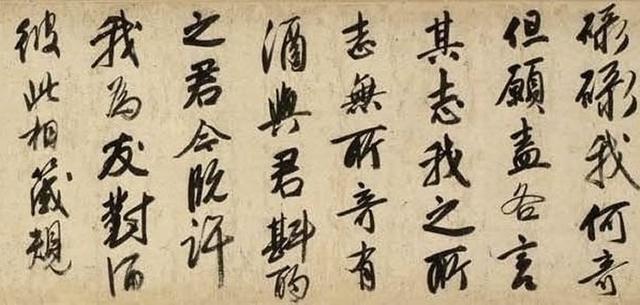 碌碌我何奇
但願盍各言
其志我之所
志無所奇有
酒與君斟酌
之君今既許
我為友對酒
彼此相箴規